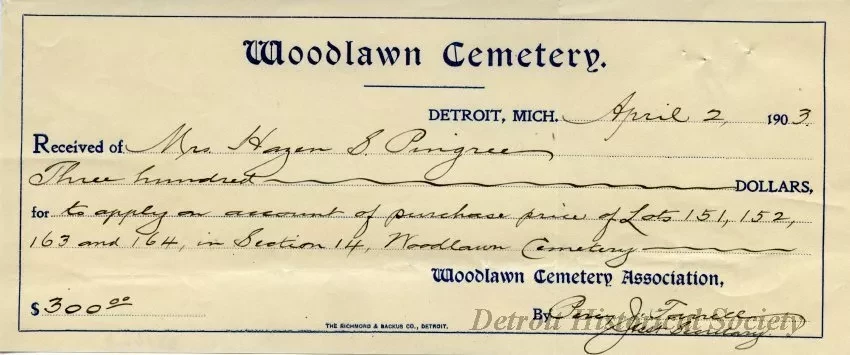 Woodlawn Cemetery.
DETROIT, MICH. April 2, 1903.
Received of Mrs Hazen S. Pingree
Three hundred DOLLARS,
for to apply on account of purchase price of Lots 151, 152,
163 and 164, in Section 14, Woodlawn Cemetery
Woodlawn Cemetery Association,
$300 00
By Percy J.
Secretary.
THE RICHMOND & BACKUS CO., DETROIT.
Detroit Historical Society